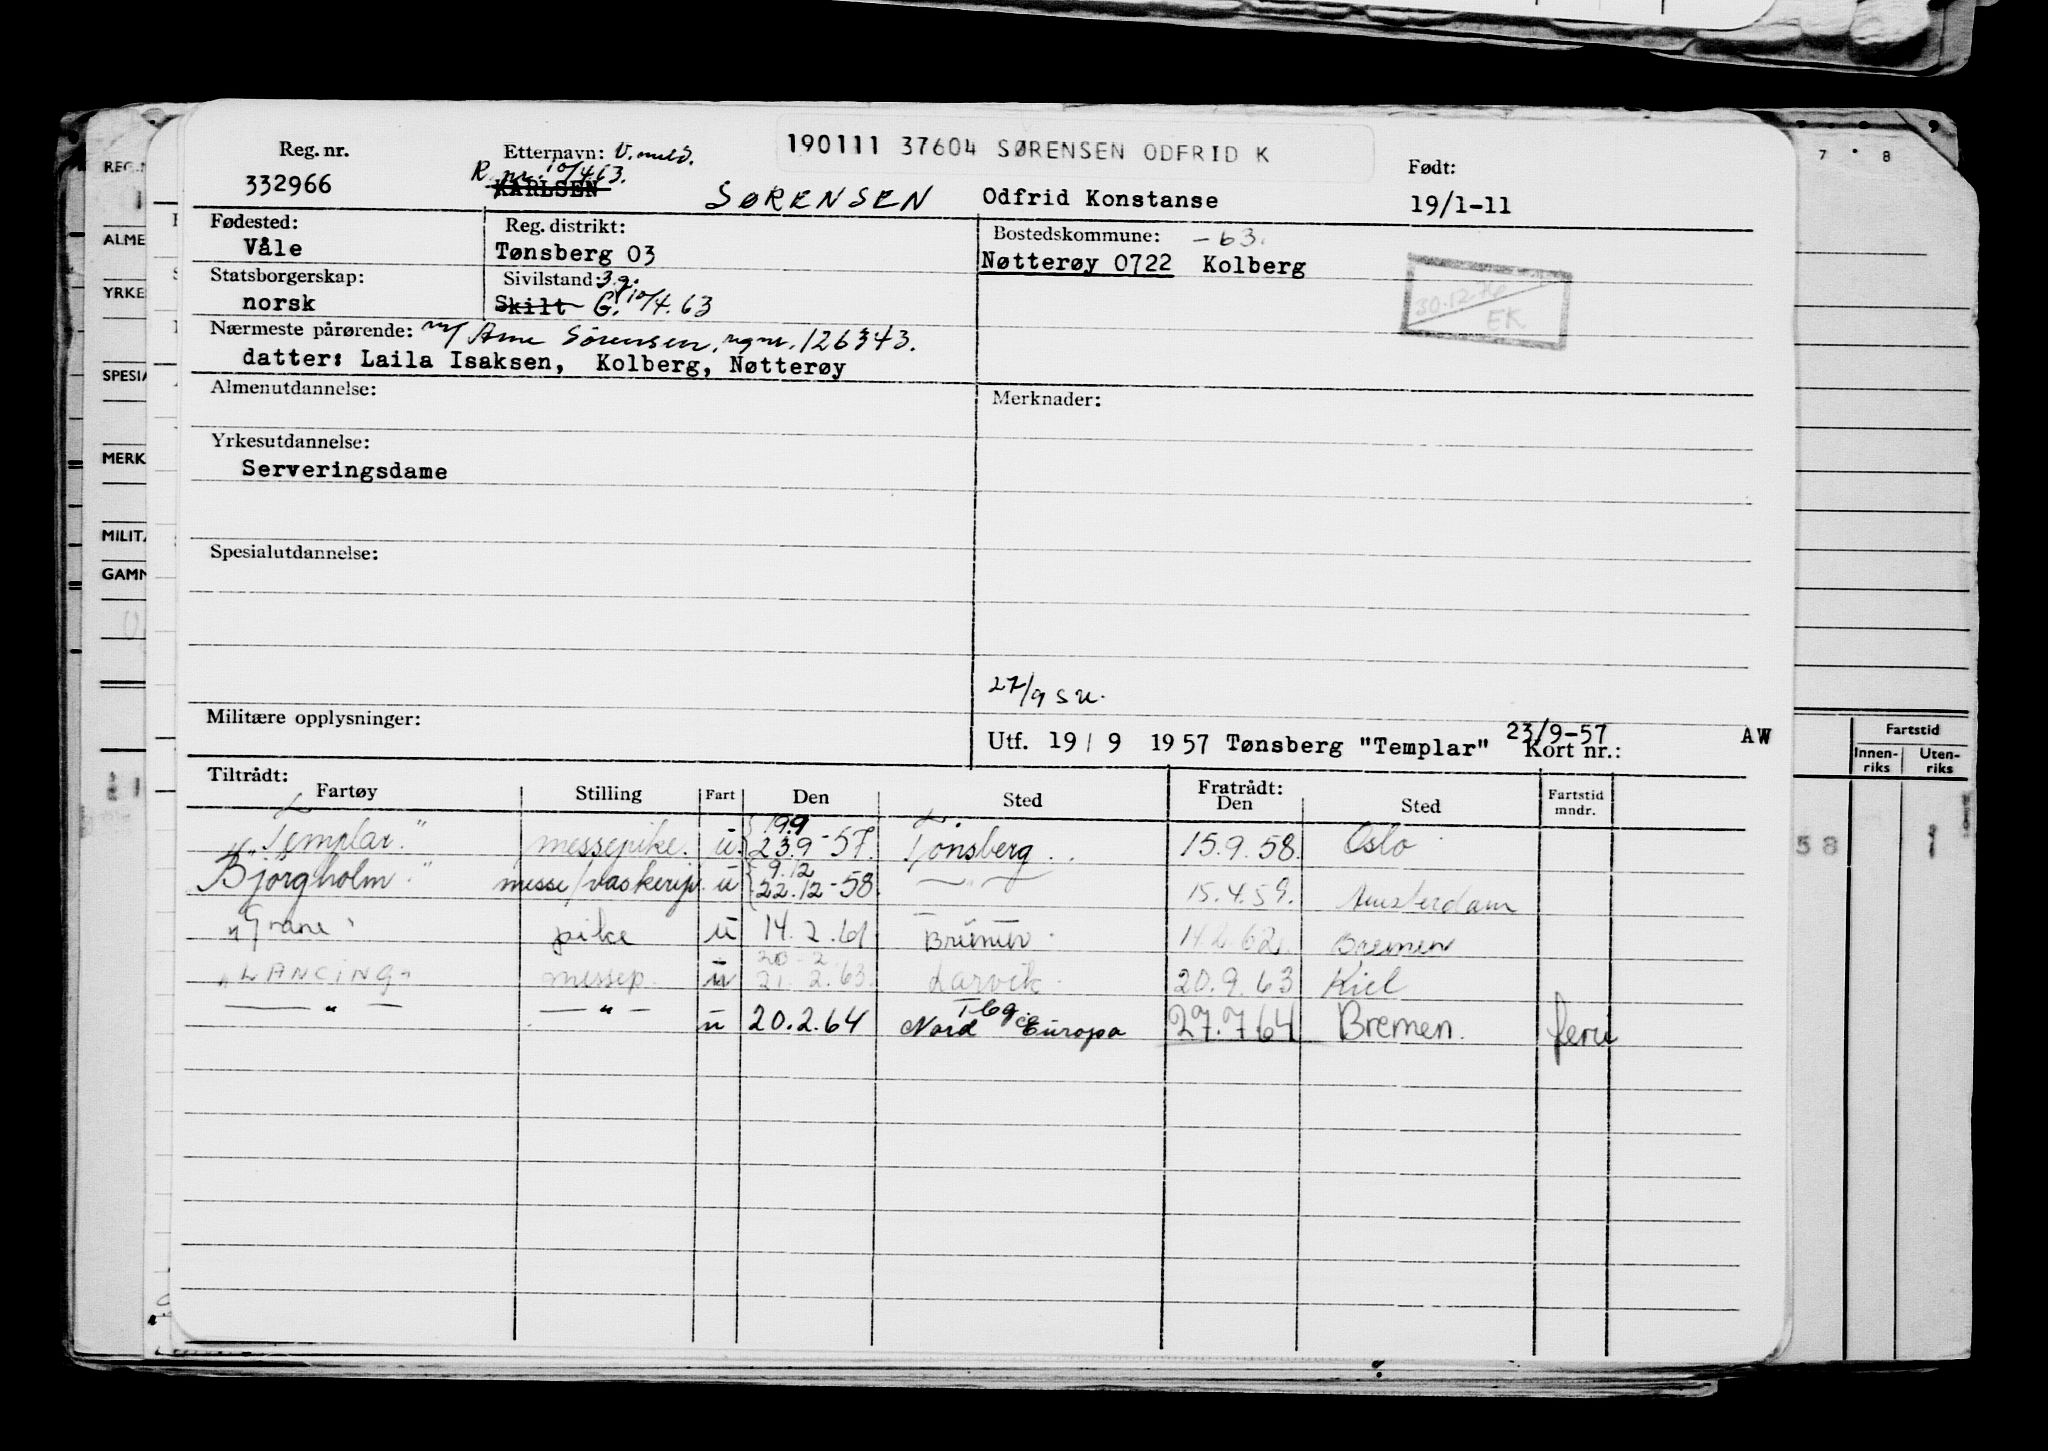 190111 37604 SØRENSEN ODFRID K
Reg. nr. Etternavn: V. meld. Født:
332966 R. nr. 10/4.63. KARLSEN SØRENSEN Odfrid Konstanse 19/1-11
Fødested: Reg. distrikt: Bostedskommune: -63.
Våle Tønsberg 03 Nøtterøy 0722 Kolberg
Statsborgerskap: Sivilstand: 3.g.
norsk Skilt G. 10/4.63
30.12.76
EK
Nærmeste pårørende: m/ Arne Sørensen, rgnr. 126343.
datter: Laila Isaksen, Kolberg, Nøtterøy
Almenutdannelse: Merknader:
Yrkesutdannelse:
Serveringsdame
Spesialutdannelse:
27/9 S.U.
Militære opplysninger:
Utf. 19/9 1957 Tønsberg "Templar" 23/9-57 Kort nr.: AW
Tiltrådt: Fratrådt:
Fartøy Stilling Fart Den Sted Den Sted Fartstid mndr.
"Templar." messepike. u 19.9 23.9-57. Tønsberg. 15.9.58. Oslo
"Bjørgholm." messe/vaskeripi. u 9.12 22.12-58. — " — 15.4.59. Amsterdam
"Grane" pike u 14.2.61 Bremen. 14.2.62. Bremen
"LANCING" messep. u 20-2 21.2.63. Larvik. 20.9.63 Kiel
— " — — " — u 20.2.64 Tbg. Nord Europa 27.7.64 Bremen.
REG.N
ALME
YRKE
SPESIA
MERK
MILITÆ
GAMM
7 8
Fartstid
Innen-riks Uten-riks
58 1